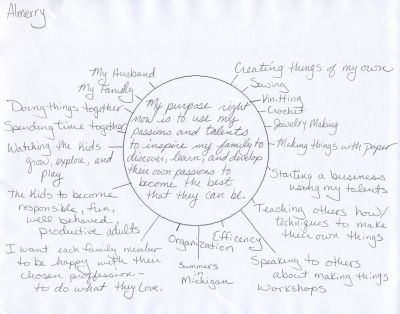 Almerry
My Husband
My Family
Doing things together
Spending time together
Watching the Kids
grow, explore, and
play
The Kids to become
responsible, fun,
well behaved,
productive adults
I want each family member
to be happy with their
chosen proffession -
to do what they love.
My purpose right
now is to use my
passions and talents
to inspire my family to
discover, learn, and develop
their own passions to
become the best
that they can be.
Creating things of my own
Sewing
Knitting
Crochet
Jewelry Making
Making things with paper
Starting a business
using my talents
Teaching others how/
techniques to make
their own things
Speaking to others
about making things
workshops
Efficency
Organization
Summers
in
Michigan